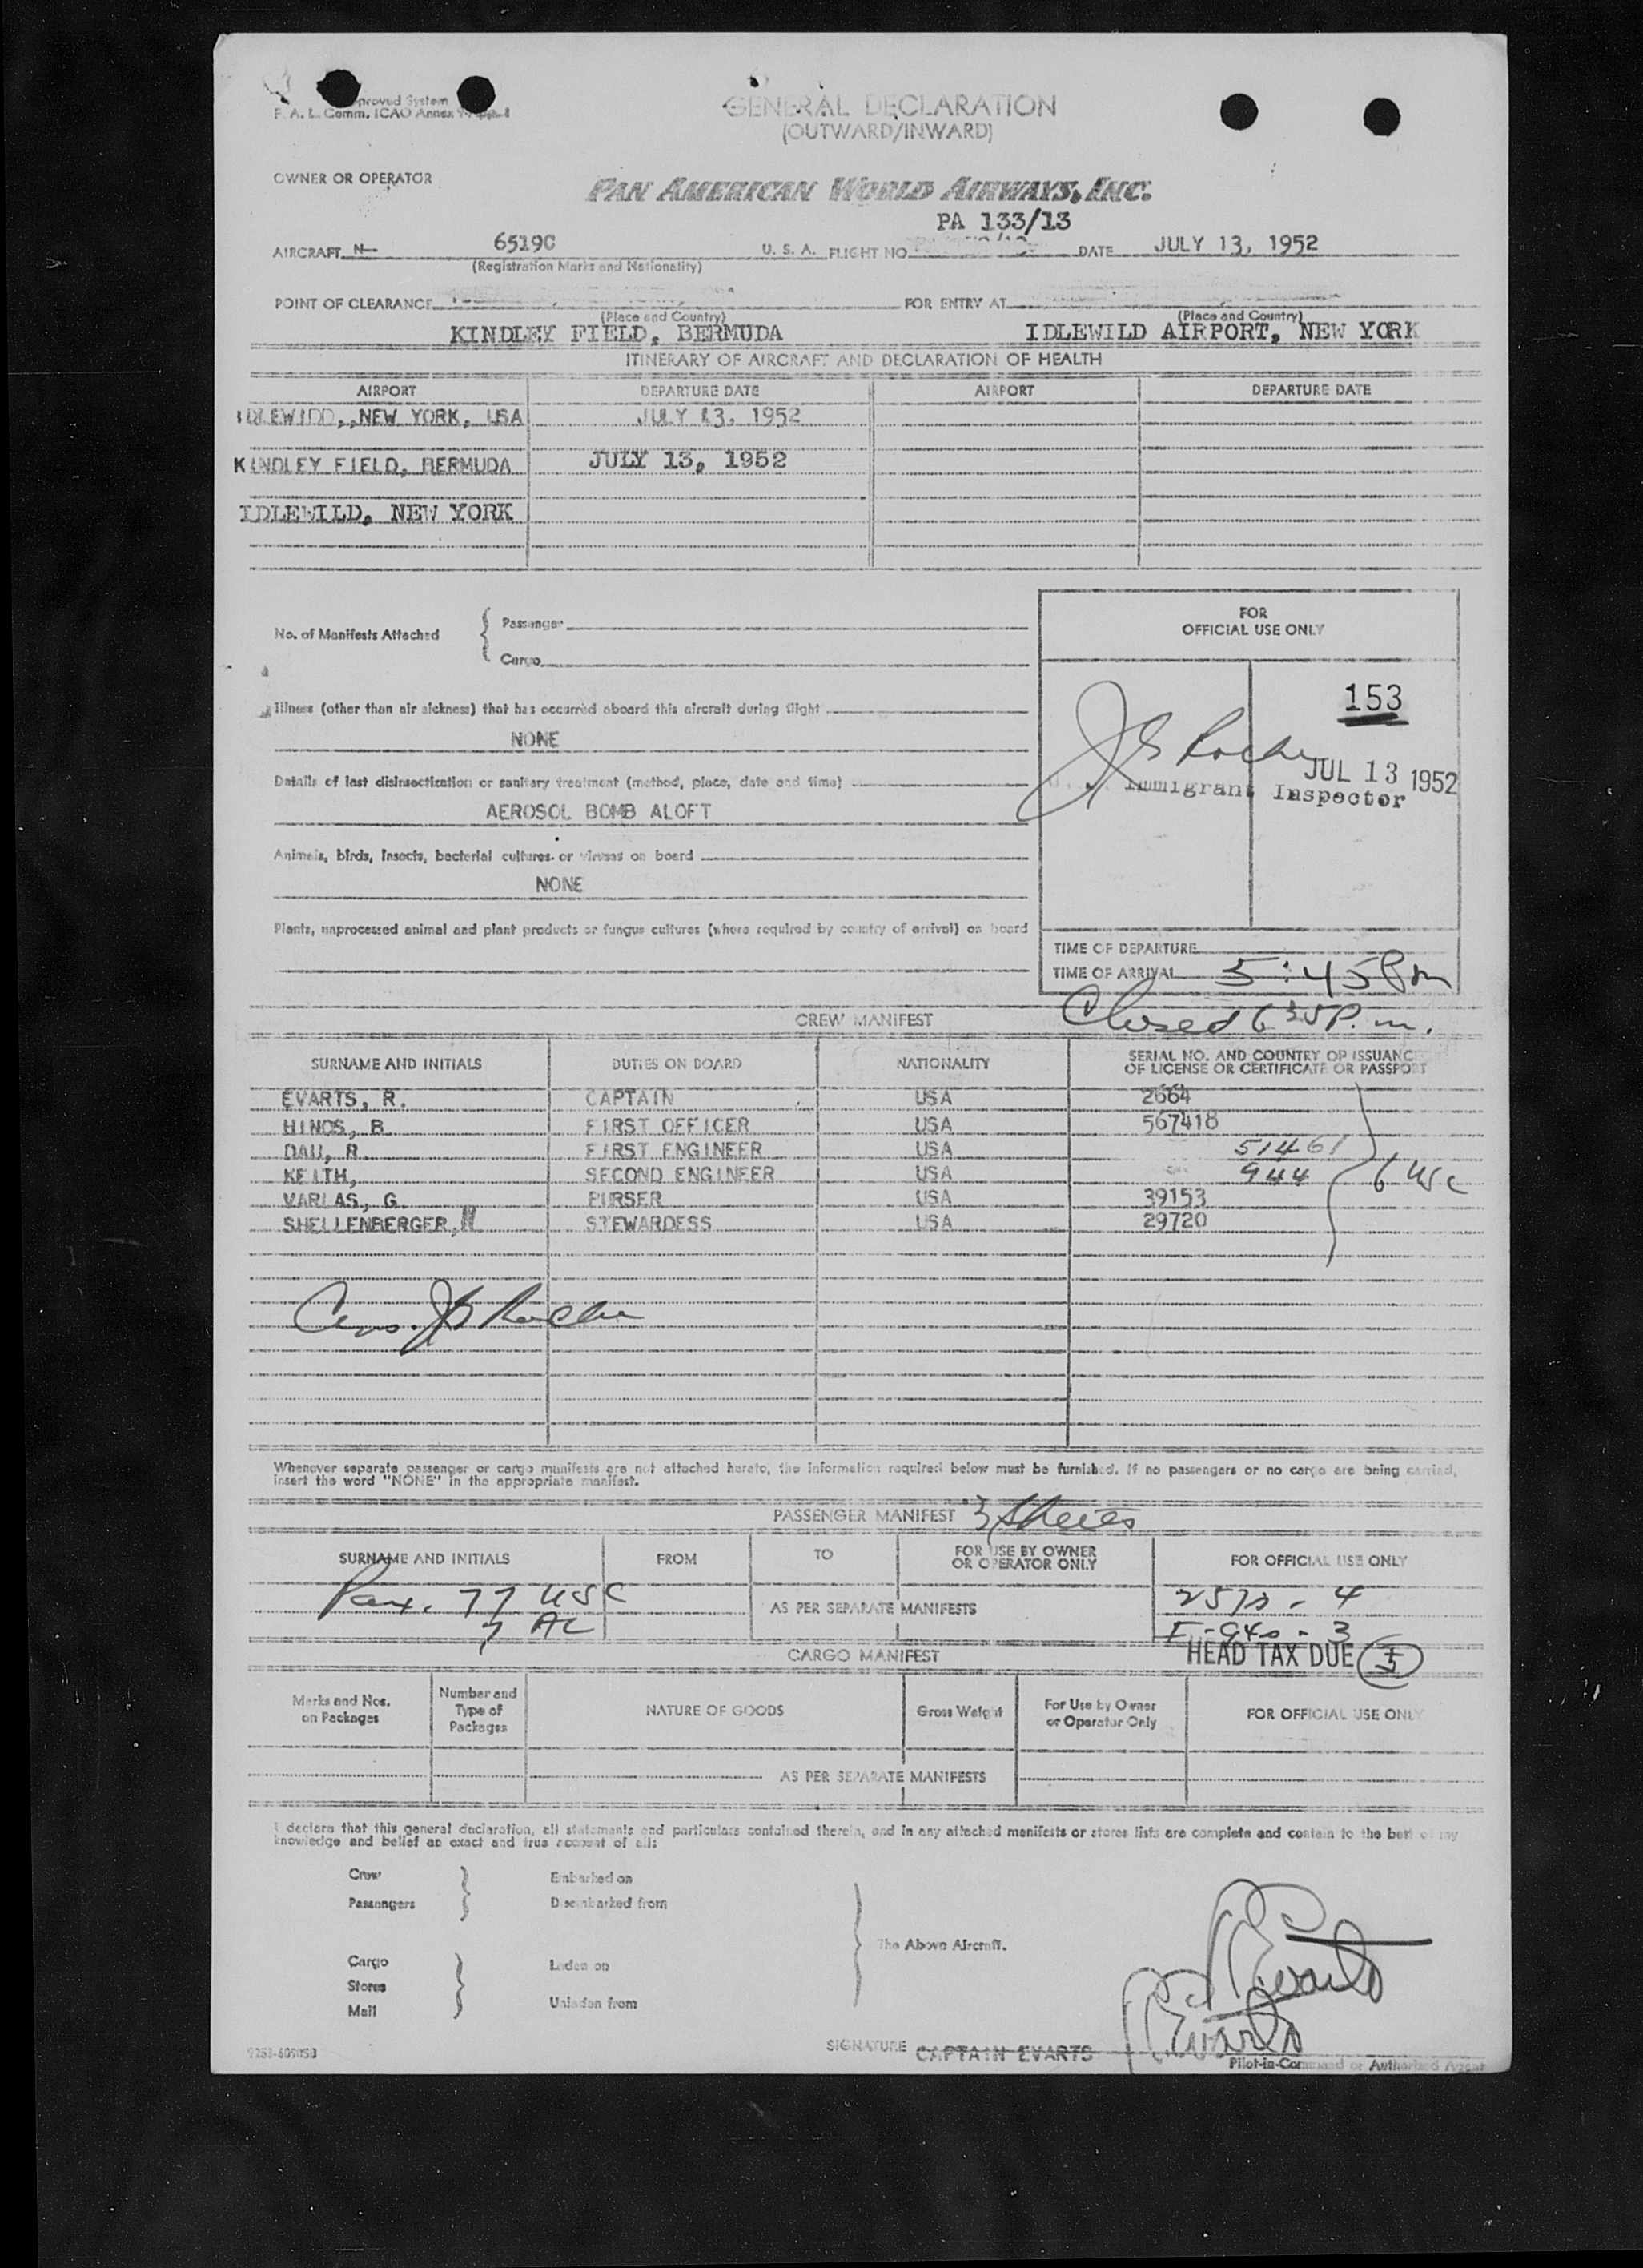 Approved System
F. A. L. Comm. ICAO Annex
GENERAL DECLARATION
(OUTWARD/INWARD)
OWNER OR OPERATOR
PAN AMERICAN WORLD AIRWAYS, INC.
PA 133/13
AIRCRAFT N- 6519C U. S. A. FLIGHT NO DATE JULY 13, 1952
(Registration Marks and Nationality)
POINT OF CLEARANCE FOR ENTRY AT
(Place and Country) (Place and Country)
KINDLEY FIELD, BERMUDA IDLEWILD AIRPORT, NEW YORK
ITINERARY OF AIRCRAFT AND DECLARATION OF HEALTH
AIRPORT DEPARTURE DATE AIRPORT DEPARTURE DATE
IDLEWIDD,,NEW YORK, USA JULY 13, 1952
KINDLEY FIELD, BERMUDA JULY 13, 1952
IDLEWILD, NEW YORK
FOR
OFFICIAL USE ONLY
No. of Manifests Attached
Passenger
Cargo
153
Illness (other than air sickness) that has occurred aboard this aircraft during flight
NONE
JUL 13 1952
Immigrant Inspector
Details of last disinsectization or sanitary treatment (method, place, date and time)
AEROSOL BOMB ALOFT
Animals, birds, insects, bacterial cultures or viruses on board
NONE
Plants, unprocessed animal and plant products or fungus cultures (where required by country of arrival) on board
TIME OF DEPARTURE
TIME OF ARRIVAL 5:45 Pm
Closed 6 35 P.m.
CREW MANIFEST
SURNAME AND INITIALS DUTIES ON BOARD NATIONALITY SERIAL NO. AND COUNTRY OF ISSUANCE
OF LICENSE OR CERTIFICATE OR PASSPORT
EVARTS, R. CAPTAIN USA 2664
HINDS, B FIRST OFFICER USA 567418
DAU, R. FIRST ENGINEER USA 51461
KEITH, SECOND ENGINEER USA 944 6 USC
VARLAS, G. PURSER USA 39153
SHELLENBERGER, USA STEWARDESS 29720
Whenever separate passenger or cargo manifests are not attached hereto, the information required below must be furnished. If no passengers or no cargo are being carried,
insert the word "NONE" in the appropriate manifest.
PASSENGER MANIFEST 3
SURNAME AND INITIALS FROM TO FOR USE BY OWNER
OR OPERATOR ONLY FOR OFFICIAL USE ONLY
Pax. 77 USC
7 AL
AS PER SEPARATE MANIFESTS
HEAD TAX DUE
CARGO MANIFEST
Marks and Nos.
on Packages
Number and
Type of
Packages
NATURE OF GOODS
Gross Weight
For Use by Owner
or Operator Only
FOR OFFICIAL USE ONLY
AS PER SEPARATE MANIFESTS
I declare that this general declaration, all statements and particulars contained therein, and in any attached manifests or stores lists are complete and contain to the best of my
knowledge and belief an exact and true account of all:
Crew Embarked on
Passengers Disembarked from
The Above Aircraft.
Cargo Laden on
Stores
Mail Unladen from
R Evarts
R Evarts
SIGNATURE CAPTAIN EVARTS
Pilot-in-Command or Authorized Agent